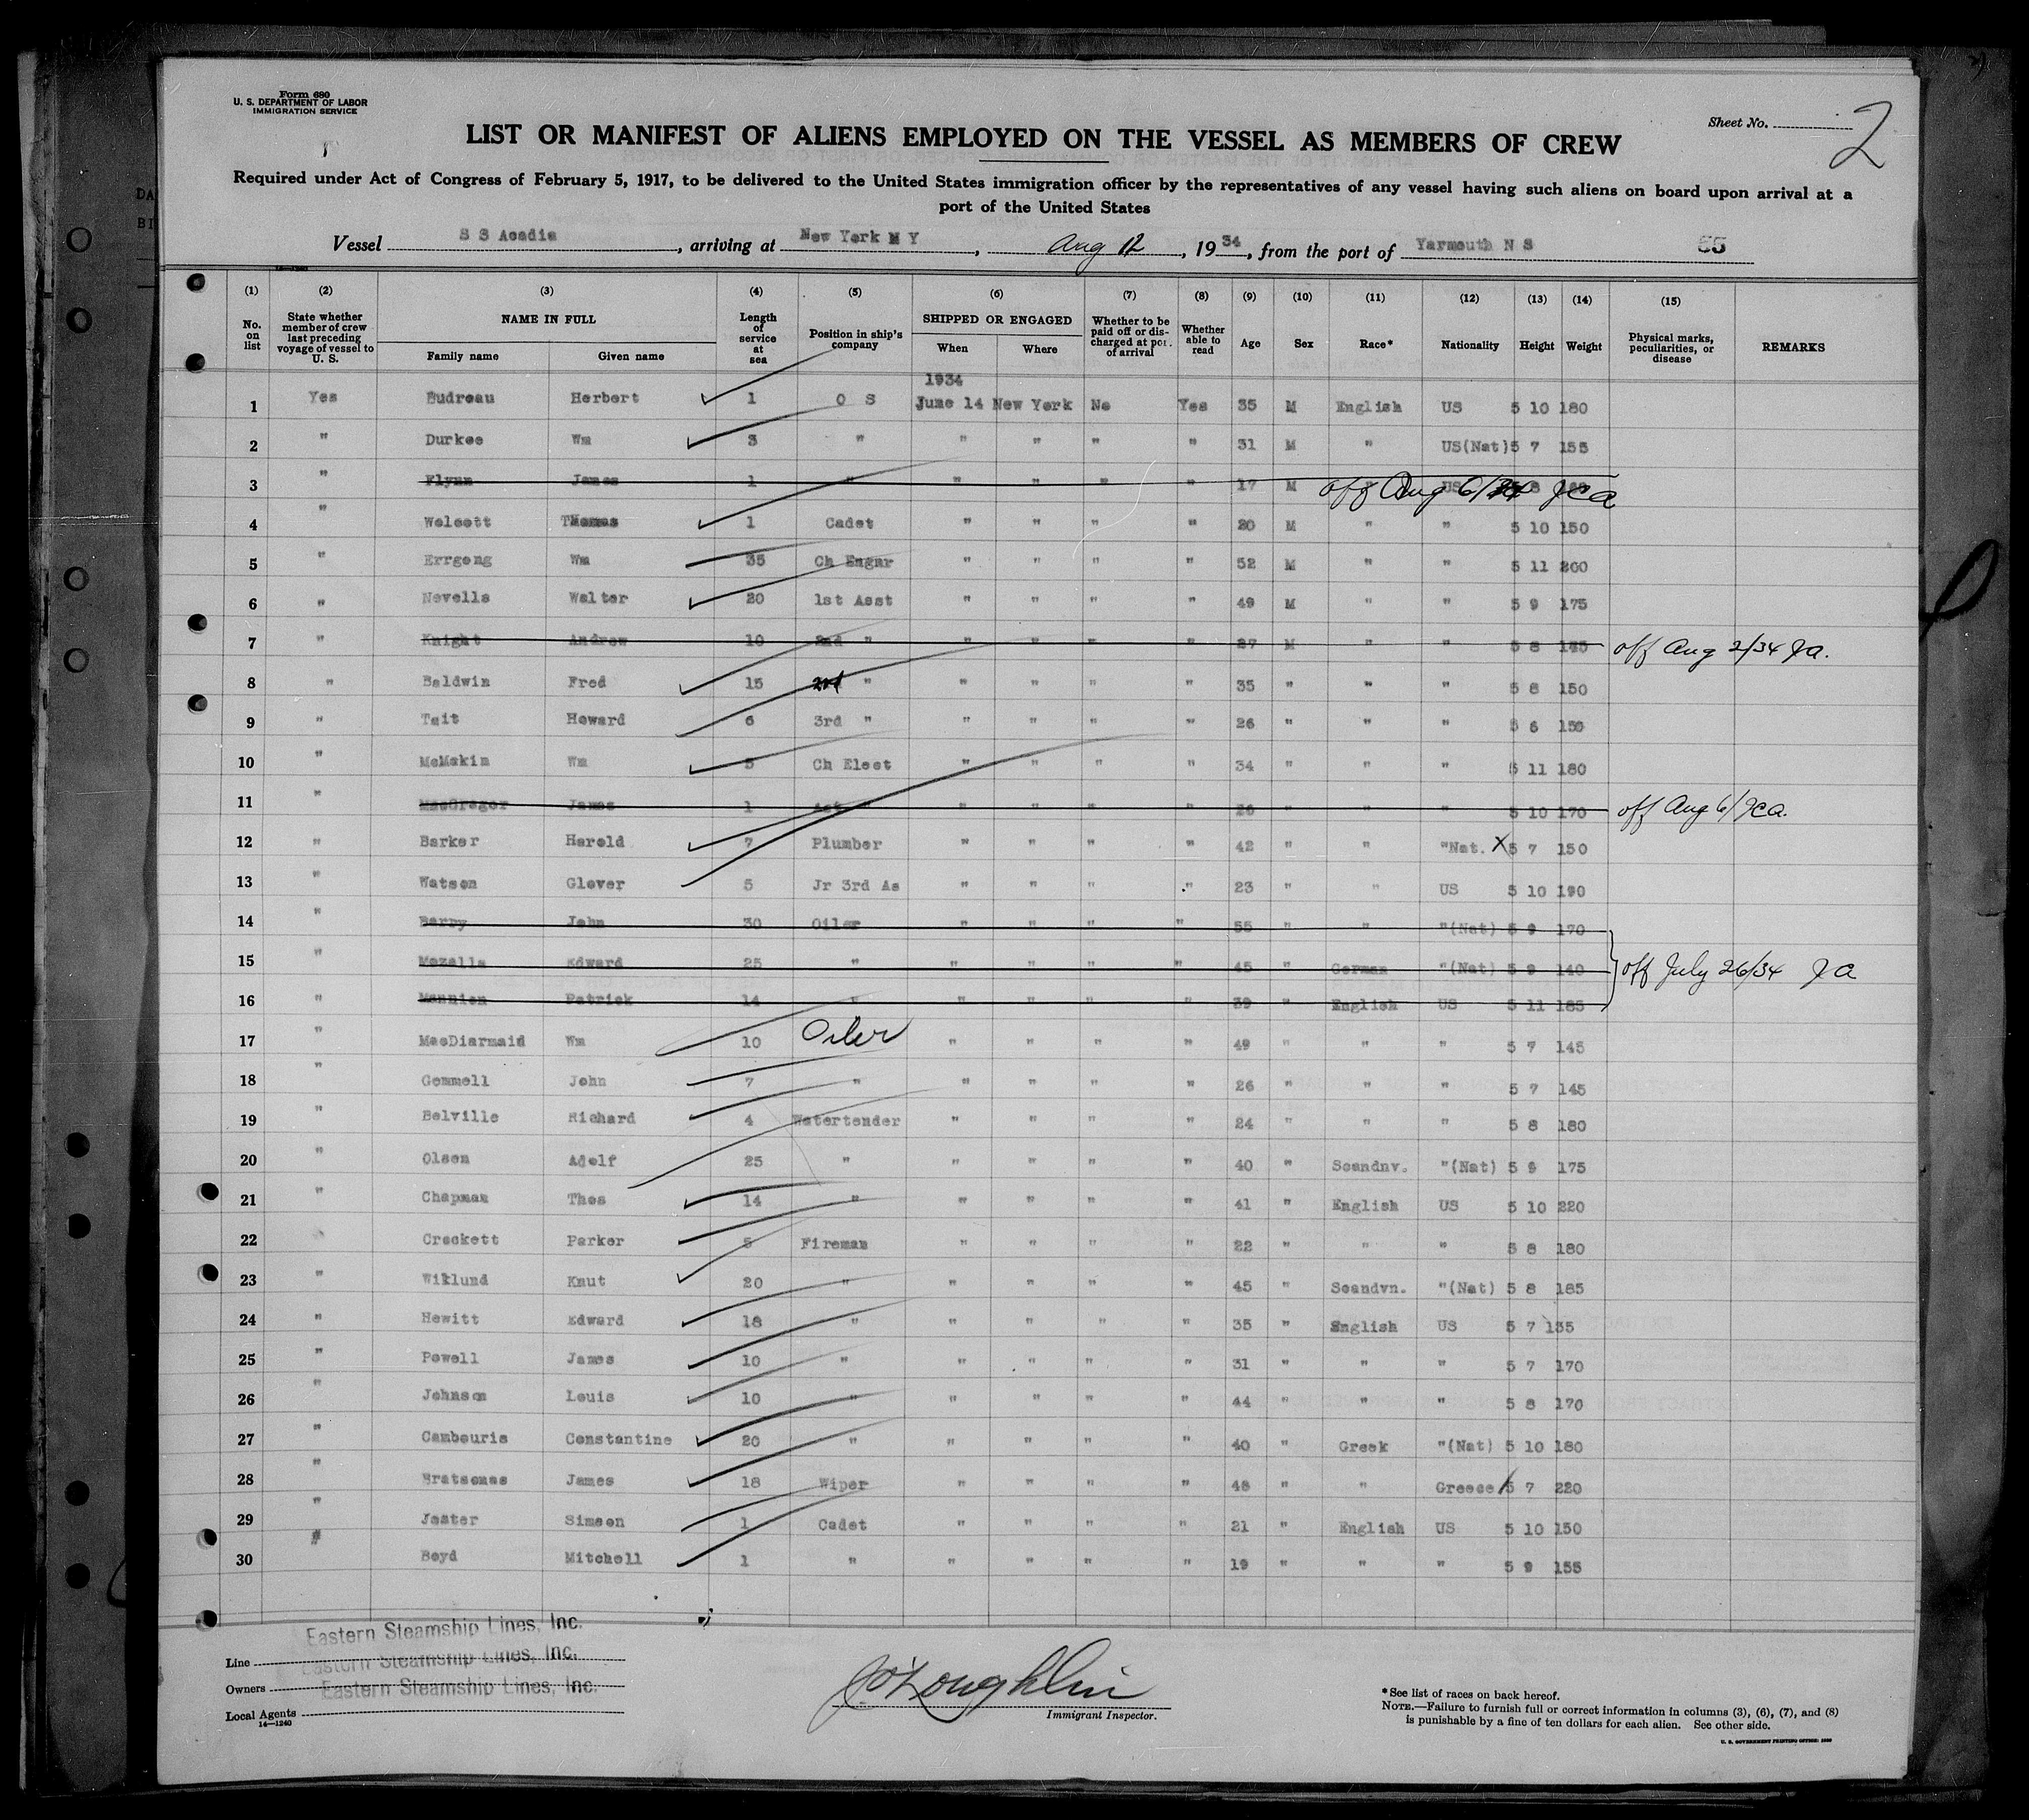 Form 680
U. S. DEPARTMENT OF LABOR
IMMIGRATION SERVICE
Sheet No. 2
LIST OR MANIFEST OF ALIENS EMPLOYED ON THE VESSEL AS MEMBERS OF CREW
Required under Act of Congress of February 5, 1917, to be delivered to the United States immigration officer by the representatives of any vessel having such aliens on board upon arrival at a
port of the United States
Vessel S S Acadia, arriving at New York N Y, Aug 12, 1934, from the port of Yarmouth N S 55
(1) (2) (3) (4) (5) (6) (7) (8) (9) (10) (11) (12) (13) (14) (15)
No. on list State whether member of crew last preceding voyage of vessel to U. S. NAME IN FULL Family name Given name Length of service at sea Position in ship's company SHIPPED OR ENGAGED When Where Whether to be paid off or discharged at port of arrival Whether able to read Age Sex Race* Nationality Height Weight Physical marks, peculiarities, or disease REMARKS
1934
1 Yes Budreau Herbert 1 O S June 14 New York No Yes 35 M English US 5 10 180
2 " Durkee Wm 3 " " " " " 31 M " US(Nat) 5 7 155
3 " Flynn James 1 " " " " " 17 M " US 5 8 off Aug 6/34 JCA
4 " Wolcott Thomas 1 Cadet " " " " 20 M " " 5 10 150
5 " Errgong Wm 35 Ch Engnr " " " " 52 M " " 5 11 200
6 " Nevells Walter 20 1st Asst " " " " 49 M " " 5 9 175
7 " Knight Andrew 10 2nd " " " " " 27 M " " 5 8 145 off Aug 2/34 JA.
8 " Baldwin Fred 15 2nd " " " " " 35 " " " 5 8 150
9 " Tait Howard 6 3rd " " " " " 26 " " " 5 6 150
10 " McMakin Wm 5 Ch Elect " " " " 34 " " " 5 11 180
11 " MacGregor James 1 Ast " " " " " 26 " " " 5 10 170 off Aug 6/ JCA.
12 " Barker Harold 7 Plumber " " " " 42 " " "Nat. X 5 7 150
13 " Watson Glover 5 Jr 3rd As " " " " 23 " " US 5 10 190
14 " Barry John 30 Oiler " " " " 55 " " "(Nat) 5 9 170
15 " Mozalla Edward 25 " " " " " 45 " German "(Nat) 5 9 140 off July 26/34 JA
16 " Mannion Patrick 14 " " " " " 39 " English US 5 11 185
17 " MacDiarmaid Wm 10 Oiler " " " " 49 " " " 5 7 145
18 " Gemmell John 7 " " " " " 26 " " " 5 7 145
19 " Belville Richard 4 Watertender " " " " 24 " " " 5 8 180
20 " Olsen Adolf 25 " " " " " 40 " Scandnv. "(Nat) 5 9 175
21 " Chapman Thos 14 " " " " " 41 " English US 5 10 220
22 Crockett Parker 5 Fireman " " " " 22 " " " 5 8 180
23 " Wiklund Knut 20 " " " " " 45 " Scandvn. "(Nat) 5 8 185
24 " Hewitt Edward 18 " " " " " 35 " English US 5 7 135
25 " Powell James 10 " " " " " 31 " " " 5 7 170
26 " Johnson Louis 10 " " " " " 44 " " " 5 8 170
27 " Cambouris Constantine 20 " " " " " 40 " Greek "(Nat) 5 10 180
28 " Bratsonas James 18 Wiper " " " " 48 " " Greece 5 7 220
29 " Jaster Simson 1 Cadet " " " " 21 " English US 5 10 150
30 " Boyd Mitchell 1 " " " " " 19 " " " 5 9 155
Line Eastern Steamship Lines, Inc.
Owners Eastern Steamship Lines, Inc.
Local Agents Eastern Steamship Lines, Inc.
14—1240
JO'Loughlin
Immigrant Inspector.
*See list of races on back hereof.
NOTE.—Failure to furnish full or correct information in columns (3), (6), (7), and (8)
is punishable by a fine of ten dollars for each alien. See other side.
U. S. GOVERNMENT PRINTING OFFICE: